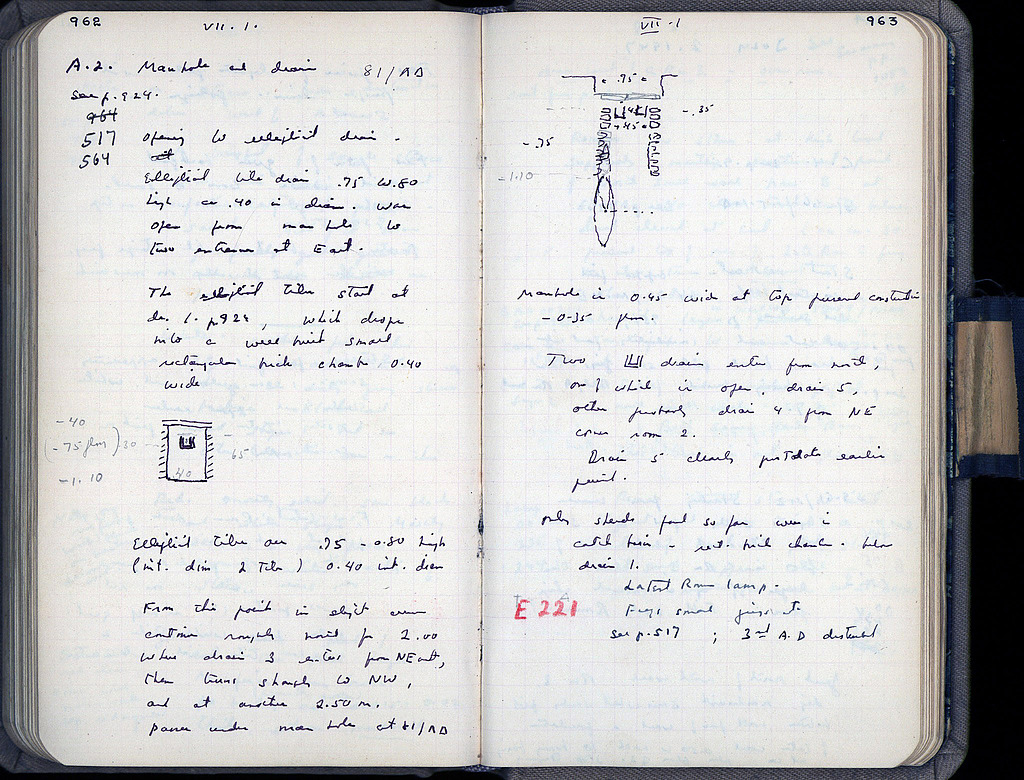 962
VII. 1.
A.2. Manhole and drain 81/AD
see p. 924.
964
517 opening to elliptical drain -
564
Elliptical tile drain .75 to .80
high or .40 in diam. was
open from man hole to
two entrances at East.
The elliptical tiles start at
dr. 1. p 924, which drops
into a well built small
rectangular brick chamber 0.40
wide
-40
(-.75 floor) 30
-1.10
65
40
Elliptical tiles are .75 - 0.80 high
(int. dim 2 tiles) 0.40 int. diam
From this point in
continue roughly north for 2.00
where drain 3 enters from NE
then turns sharply to NW,
and at another 2.50 m.
passes under man hole at 81/AD
963
VII.1
.75
.45
-.35
-.75
-1.10
Manhole is 0.45 wide at top present construction
-0.35 from.
Two drains enter from north,
one of which is open, drain 5,
other probably drain 4 from NE
corner room 2.
Drain 5 clearly postdates earlier
period.
Only sherds found so far were in
catch basin - rect. brick chamber below
drain 1.
Latest Roman lamp -
Frags small
E 221
see p. 517 ; 3rd A.D disturbed